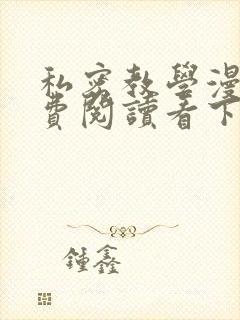 私密教學漫
費閱讀看下
鍾鑫